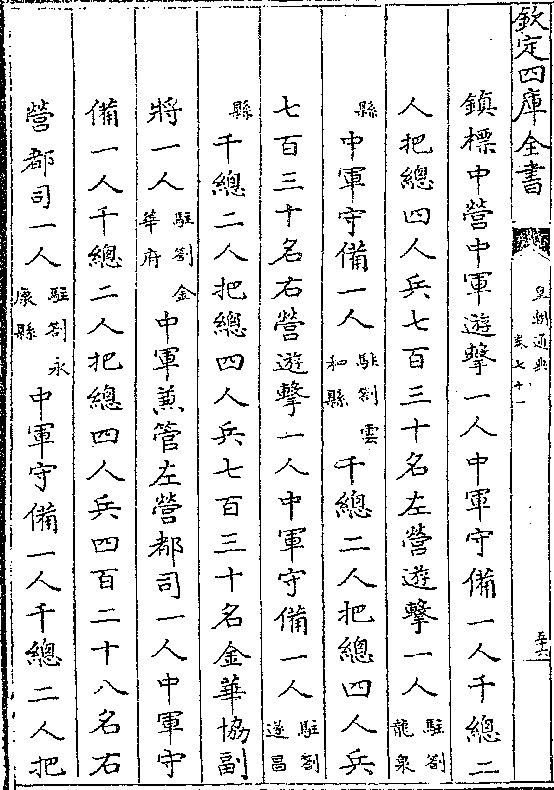 欽定四庫全書
皇朝通典
卷七十一
鎮標中營中軍遊擊一人中軍守備一人千總二
人把總四人兵七百三十名左營遊擊一人駐劄龍泉
縣中軍守備一人駐劄雲和縣千總二人把總四人兵
七百三十名右營遊擊一人中軍守備一人駐劄遂昌
縣千總二人把總四人兵七百三十名金華協副
將一人駐劄金華府中軍兼管左營都司一人中軍守
備一人千總二人把總四人兵四百二十八名右
營都司一人駐劄永康縣中軍守備一人千總二人把